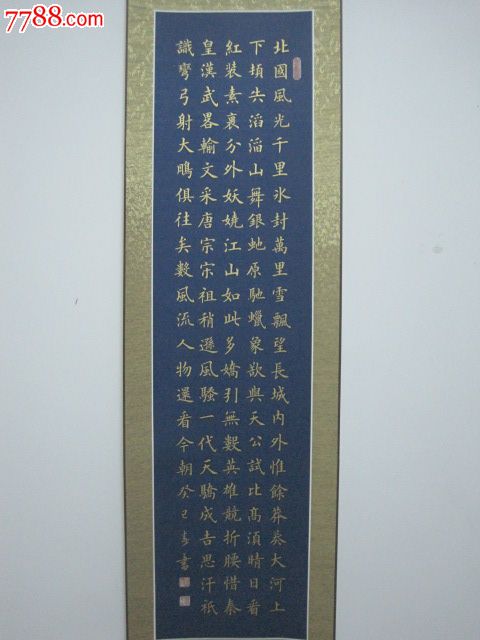 7788.com
北國風光千里氷封萬里雪飄望長城內外惟餘莽莽大河上
下頓失滔滔山舞銀蛇原馳蠟象欲與天公試比髙湏晴日看
紅裝素裹分外妖嬈江山如此多嬌引無數英雄競折腰惜秦
皇漢武畧輸文采唐宗宋祖稍遜風騷一代天驕成吉思汗衹
識彎弓射大鵰俱往矣數風流人物還看今朝癸巳春書